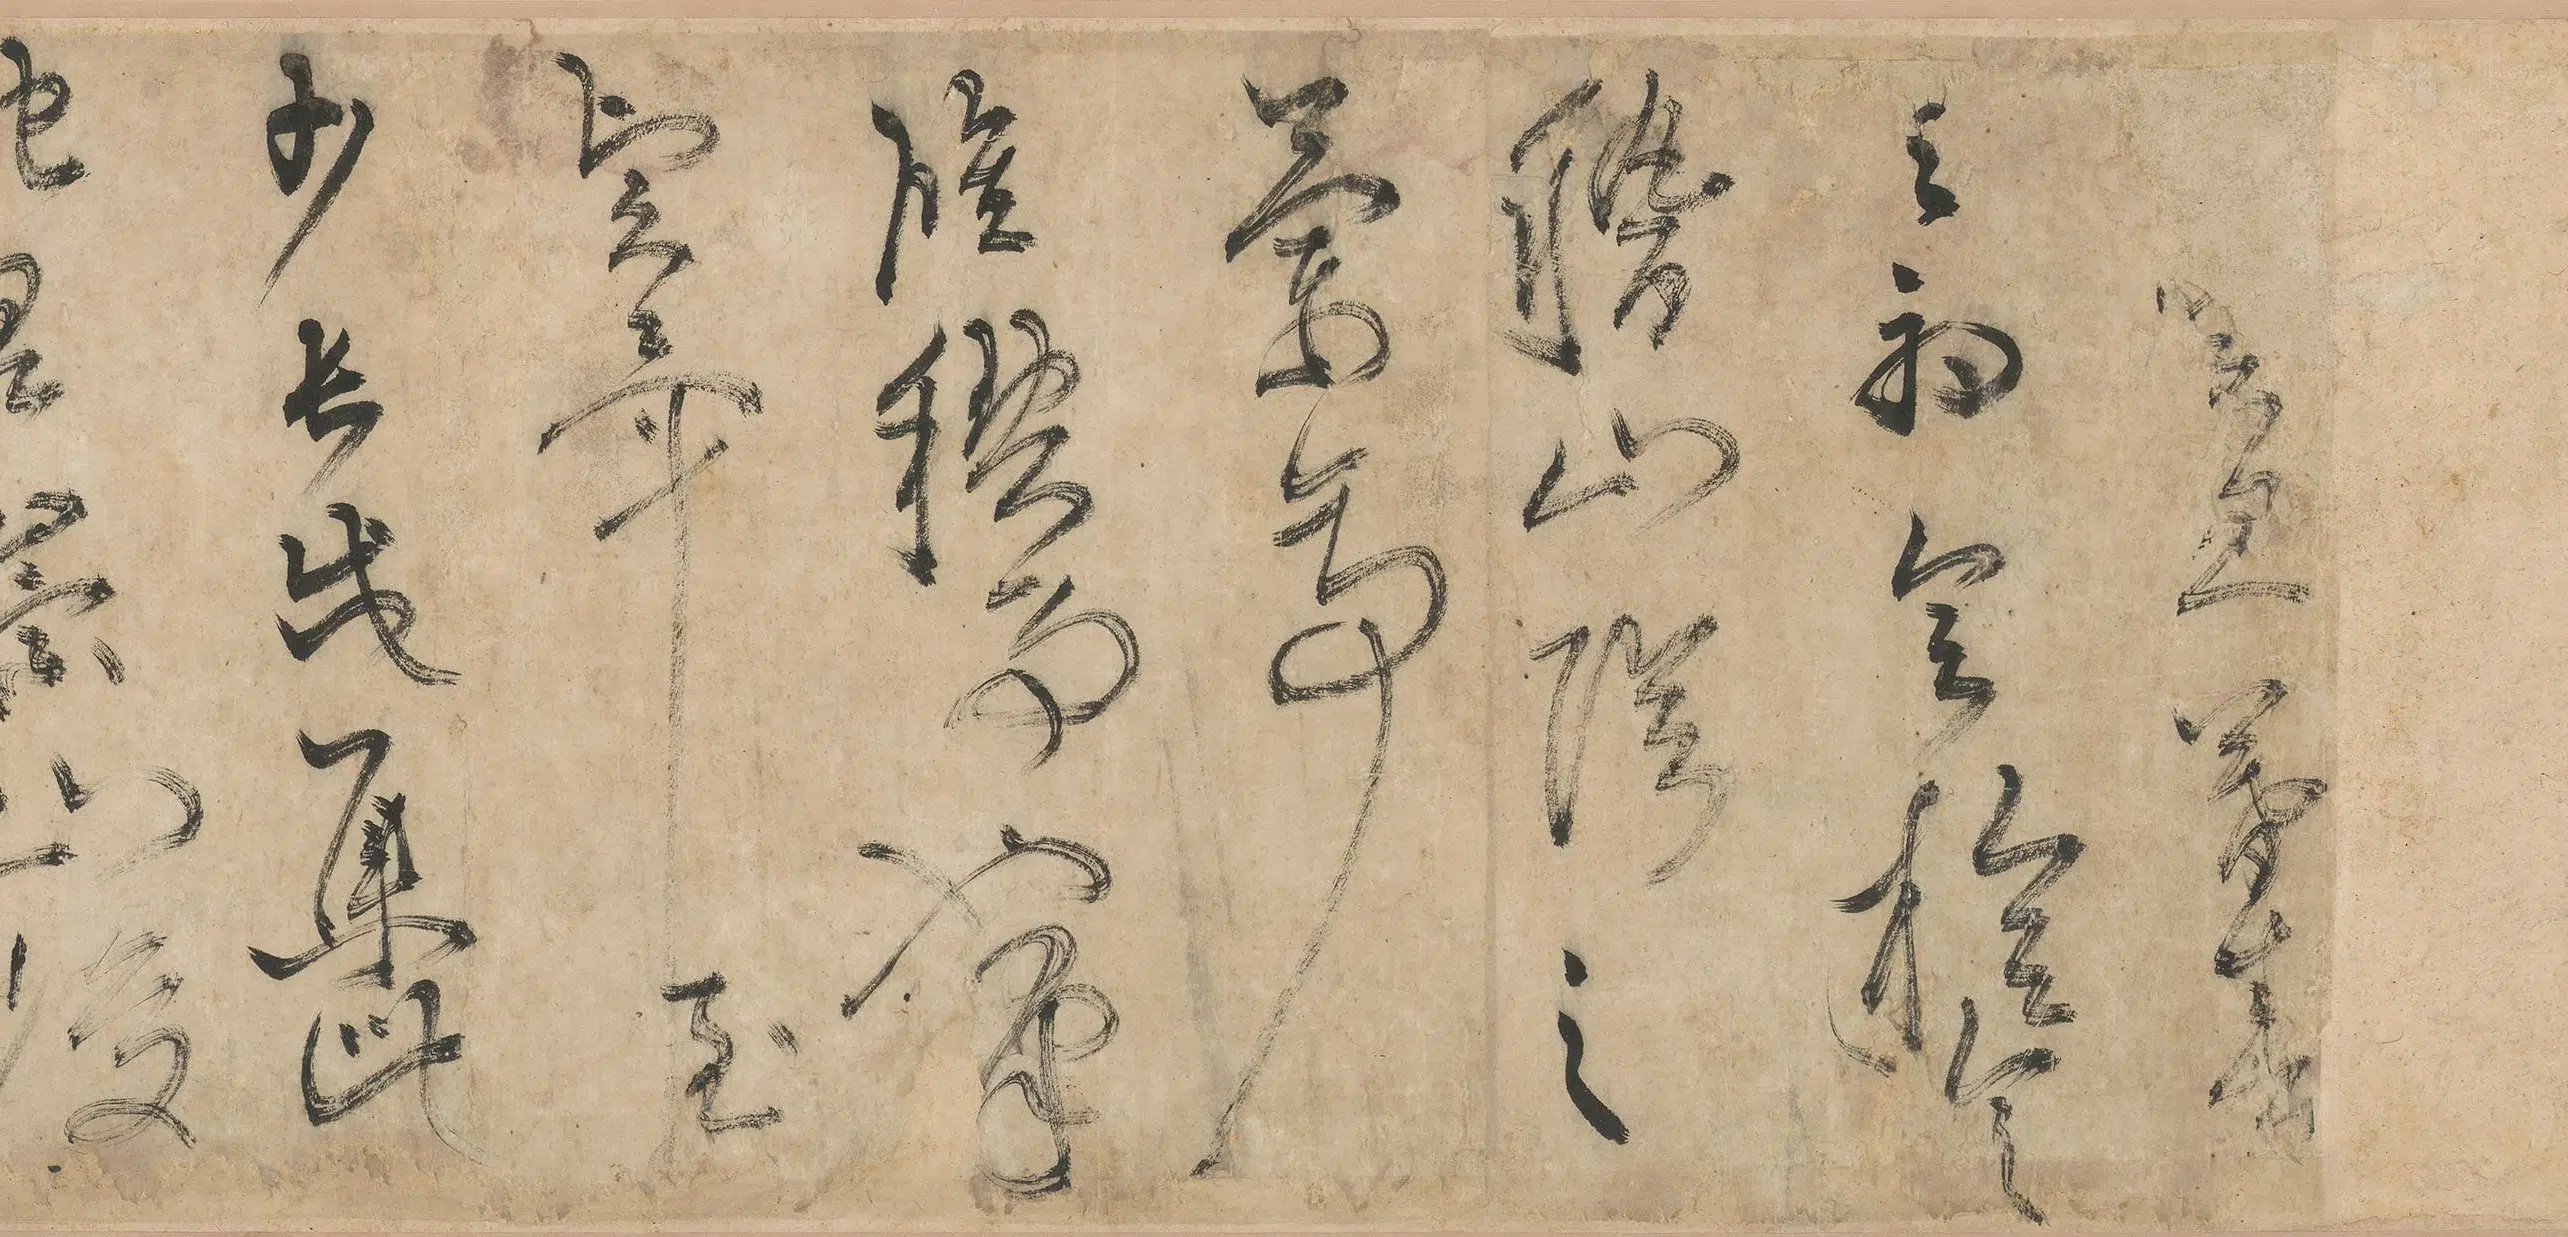 癸丑暮春
之初會於會
稽山陰之
蘭亭
脩稧事也群
賢畢至
少長咸集此
地 崇山峻